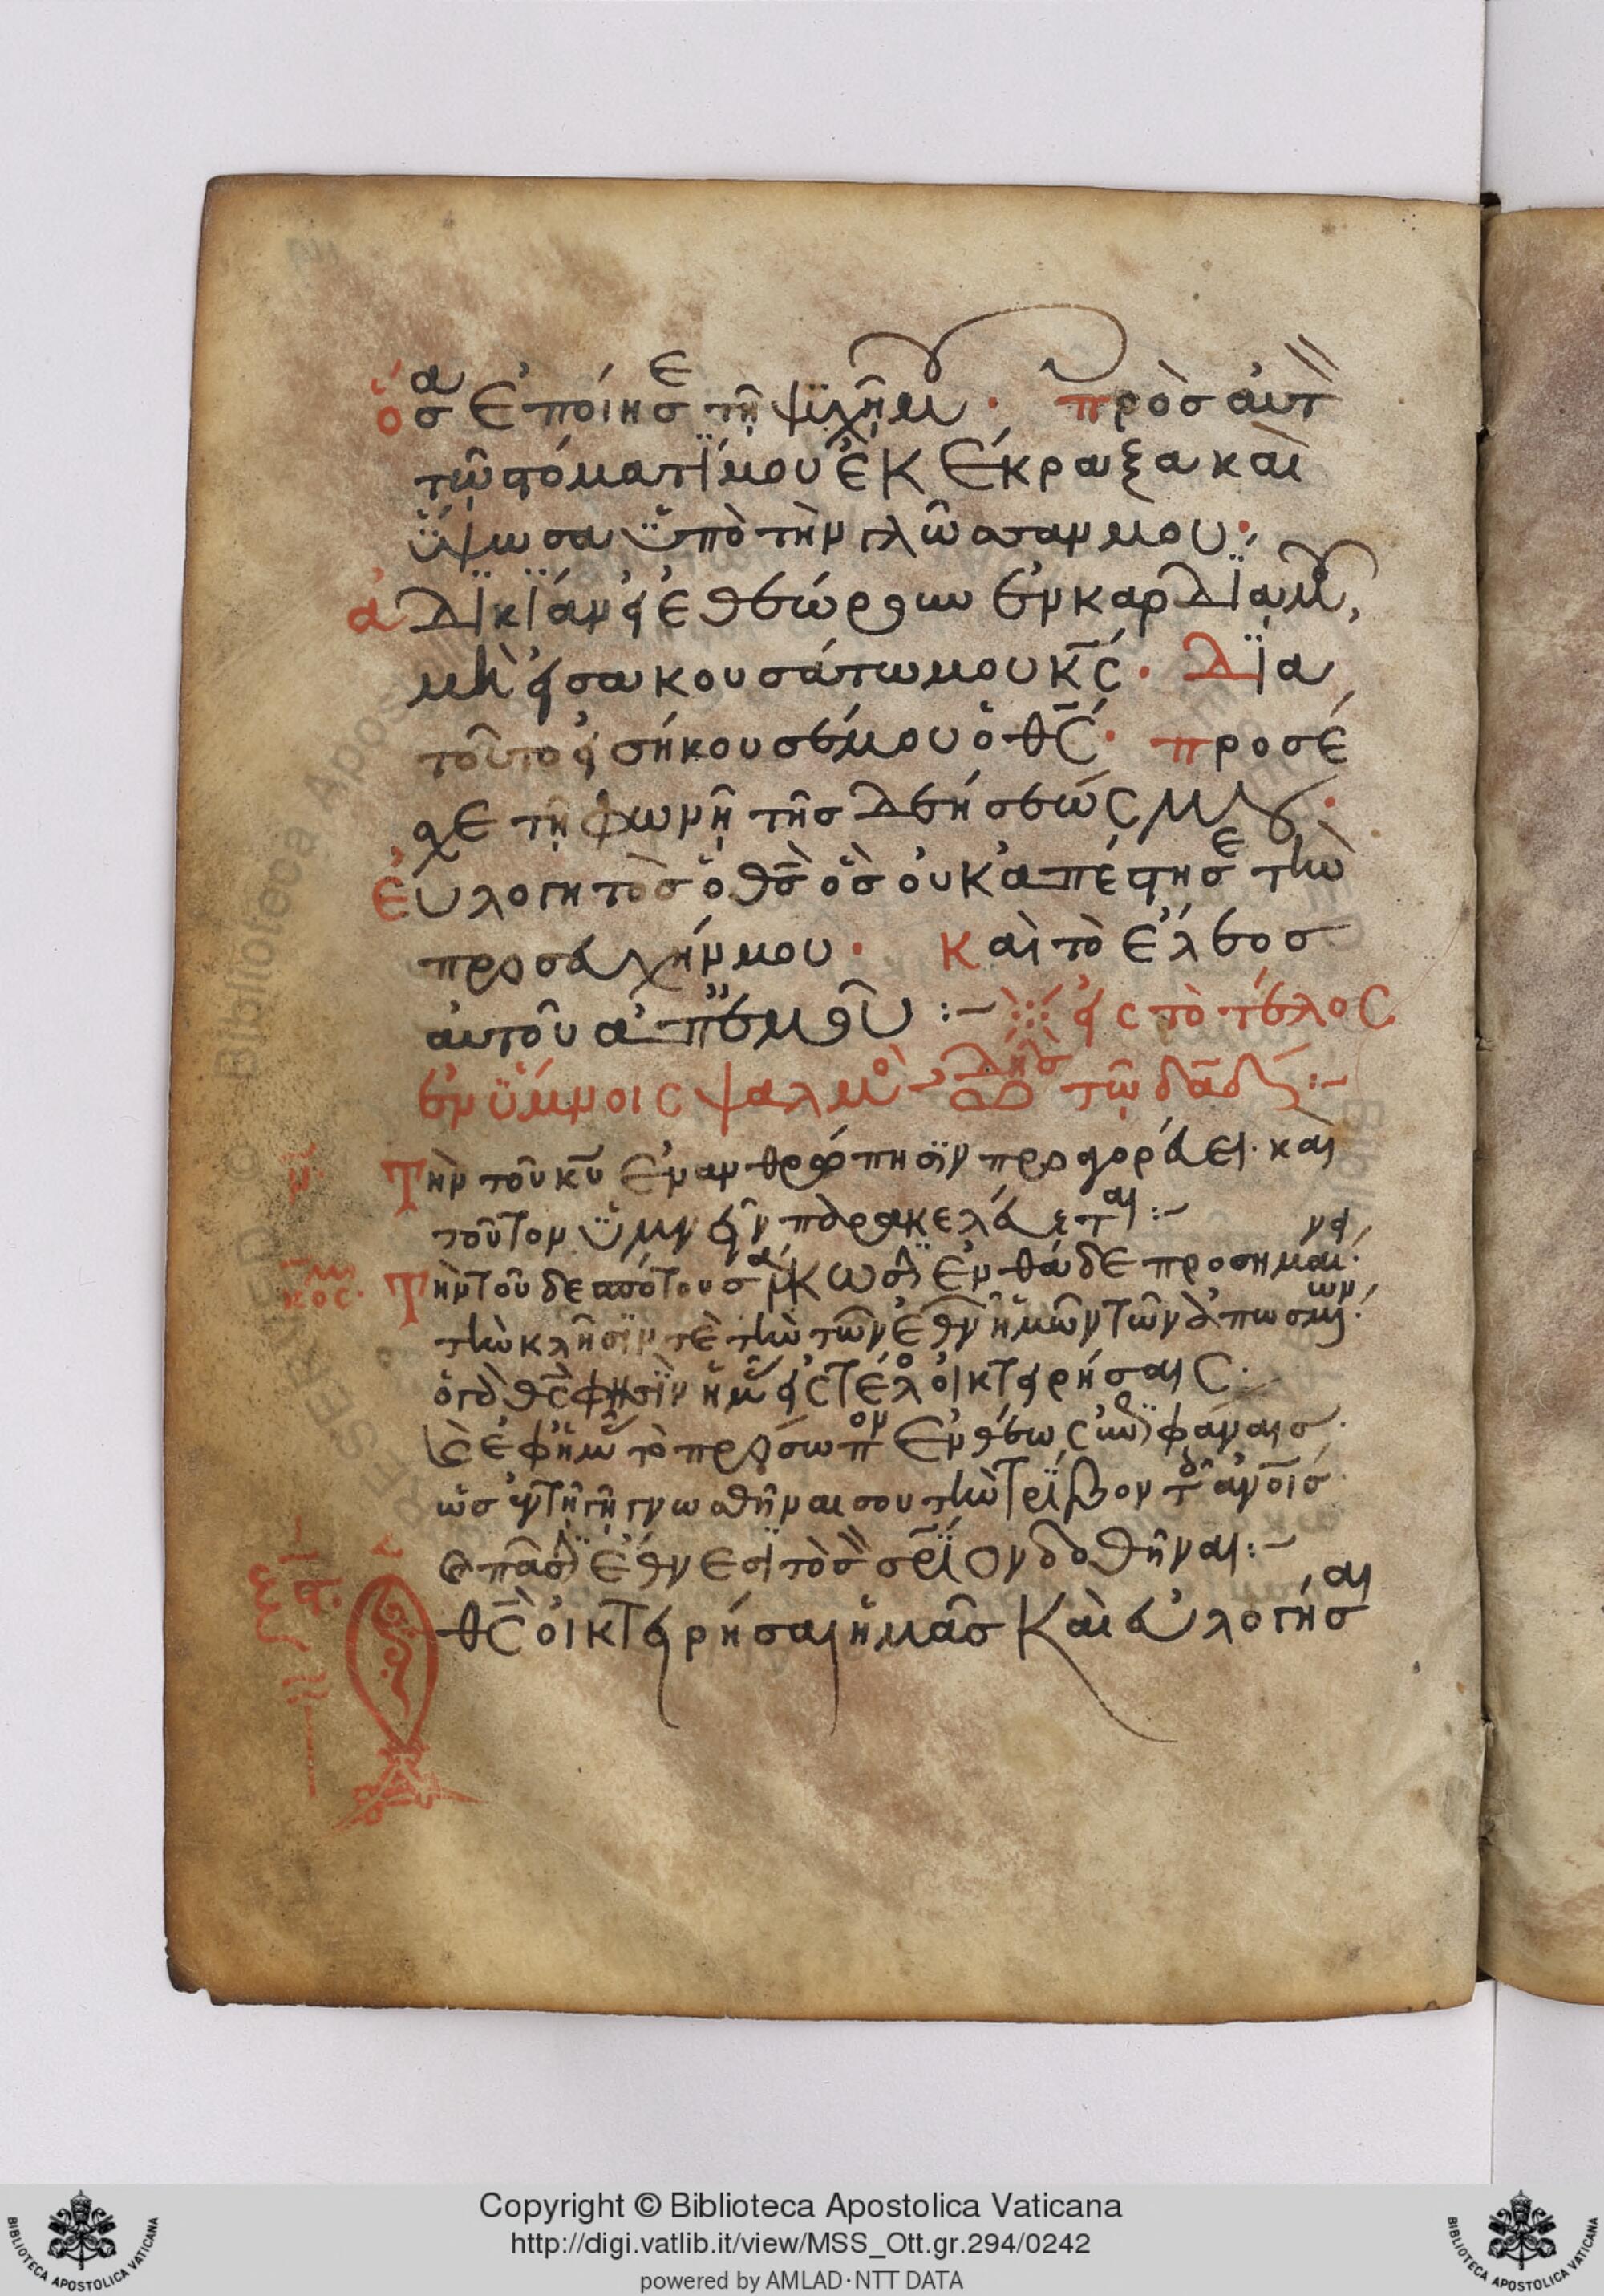 ὅσα ἐποίησε τῇ ψυχῇ μου· πρὸς αὐτ
τῷ στόματί μου ἐκέκραξα καὶ
ὕψωσα ὑπὸ τὴν γλῶσσαν μου·
ἀδικίαν εἰ ἐθεώρουν ἐν καρδίᾳ μου,
μὴ εἰσακουσάτω μου κς· Διὰ
τοῦτο εἰσήκουσέ μου ὁ θς· προσέ
χε τῇ φωνῇ τῆς δεήσεώς μου·
εὐλογητὸς ὁ θς ὃς οὐκ ἀπέστησε τὴν
προσευχήν μου· καὶ τὸ ἔλεος
αὐτοῦ ἀπ' ἐμοῦ :– εἰς τὸ τέλος
ἐν ὕμνοις ψαλμὸς ᾠδῆς τῷ δαδ :–
Τὴν τοῦ κυ ἐνανθρώπησιν προαγορεύει· καὶ
τοῦτον ὑμνεῖν παρακελεύεται :–
Τὴν τοῦ δεσπότου σάρκωσιν ἐνθάδε προσημαίνει·
τὴν κλῆσίν τε τὴν τῶν ἐθνῶν
ὁ θς φησὶν ἡμᾶς εἰς τέλος οἰκτειρήσαις·
ἐφ' ἡμᾶς τὸ πρόσωπον
ὡς ἐν τῇ γῇ γνωσθῆναι σου τὴν τρίβον τοῖς ἀνοις·
πᾶσιν ἔθνεσι τὸ σὸν σριον δοθῆναι :–
Ὁ θς οἰκτειρήσαι ἡμᾶς καὶ εὐλογήσαι
Copyright © Biblioteca Apostolica Vaticana
http://digi.vatlib.it/view/MSS_Ott.gr.294/0242
powered by AMLAD·NTT DATA
BIBLIOTECA APOSTOLICA VATICANA
BIBLIOTECA APOSTOLICA VATICANA